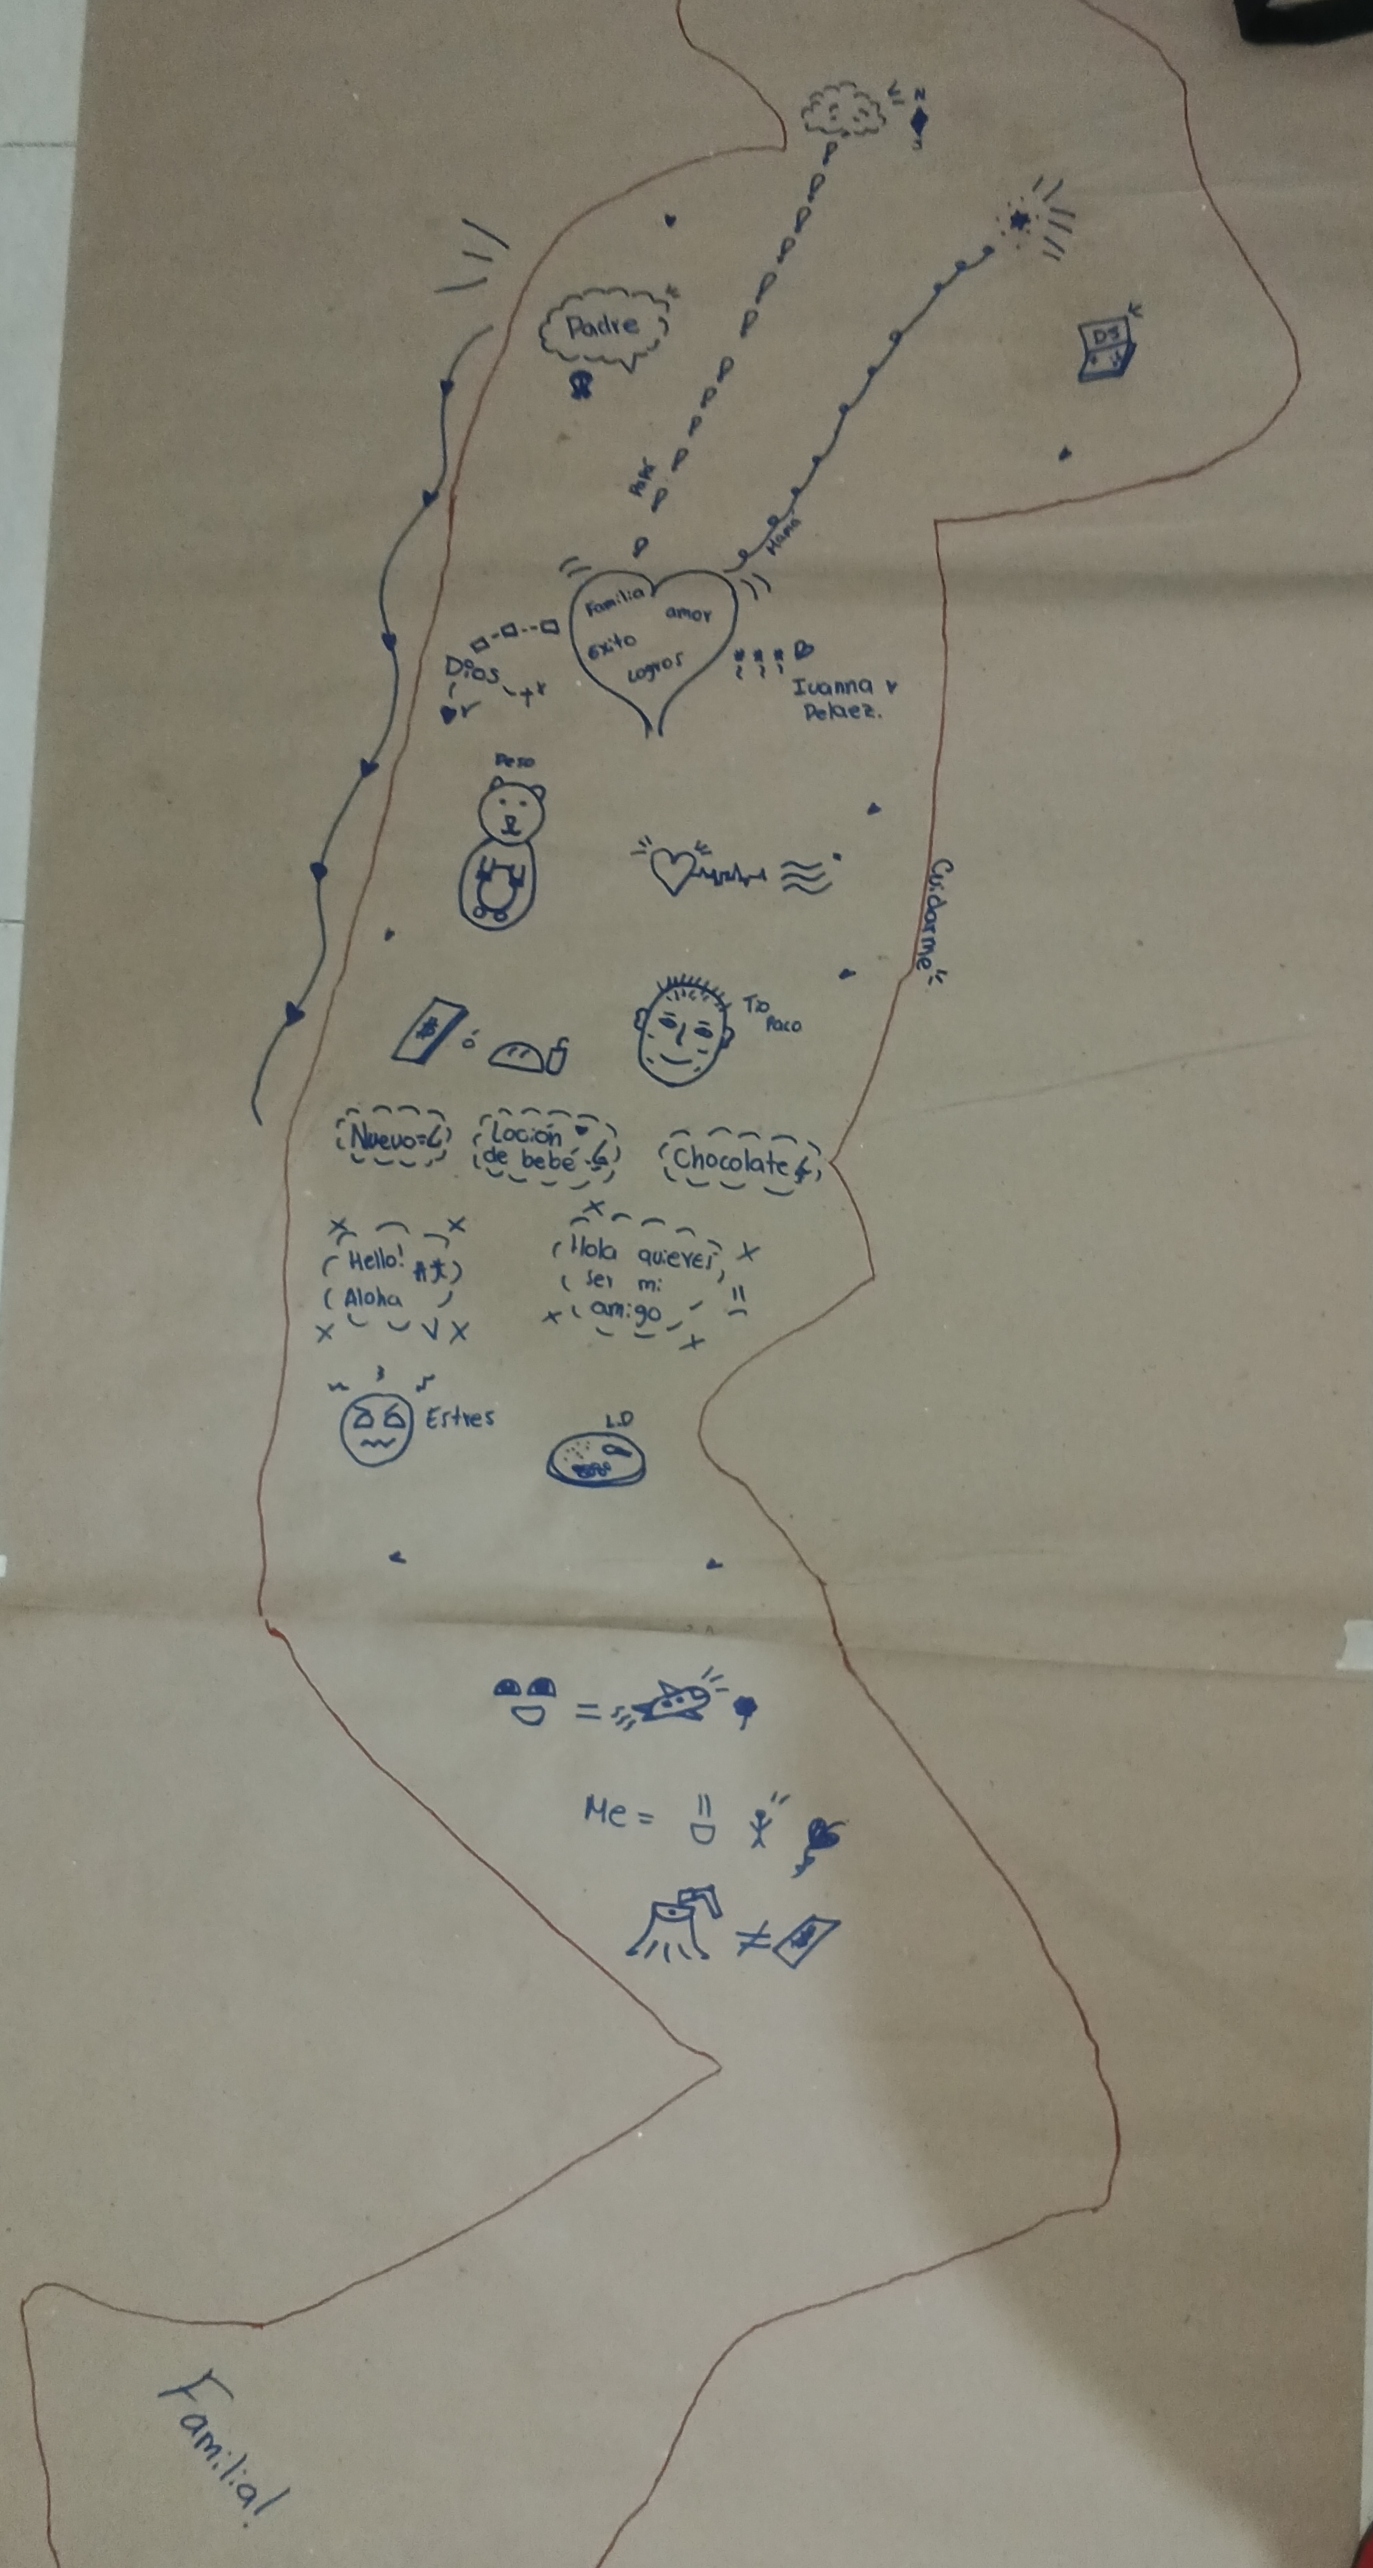 N
S
Padre
DJ
Papá
Mamá
Familia
amor
éxito
Logros
Dios
Ivanna y
Pelaez.
Peso
Cuidarme
$ ó
Tío
Paco
Nuevo=
Loción
de bebé
Chocolate
Hello!
Aloha
Hola quieres
ser mi
amigo
Estres
L.D
=
Me =
≠ $
Familia!